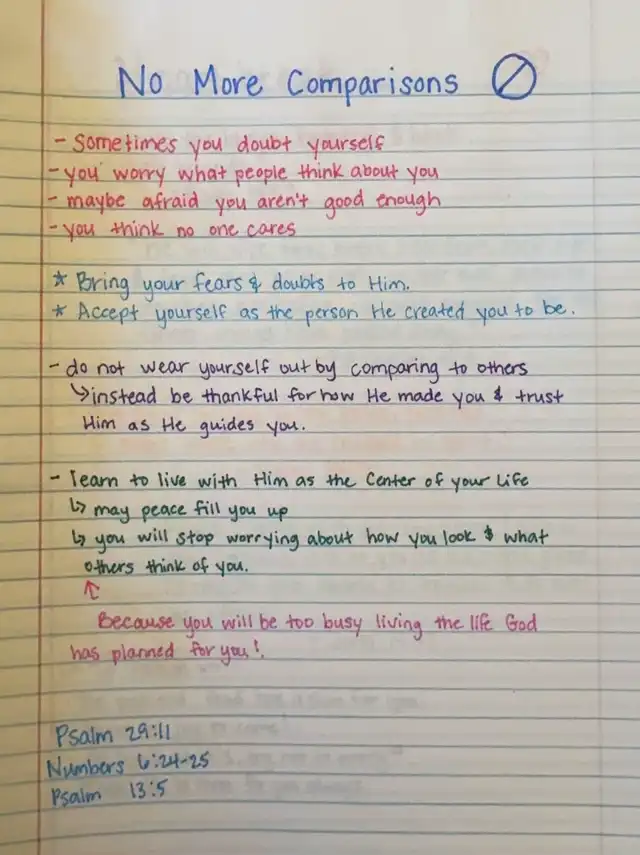 No More Comparisons
- Sometimes you doubt yourself
- you worry what people think about you
- maybe afraid you aren't good enough
- you think no one cares
* Bring your fears & doubts to Him.
* Accept yourself as the person He created you to be.
- do not wear yourself out by comparing to others
↳ instead be thankful for how He made you & trust
Him as He guides you.
- learn to live with Him as the Center of your Life
↳ may peace fill you up
↳ you will stop worrying about how you look & what
others think of you.
↑
Because you will be too busy living the life God
has planned for you!
Psalm 29:11
Numbers 6:24-25
Psalm 13:5